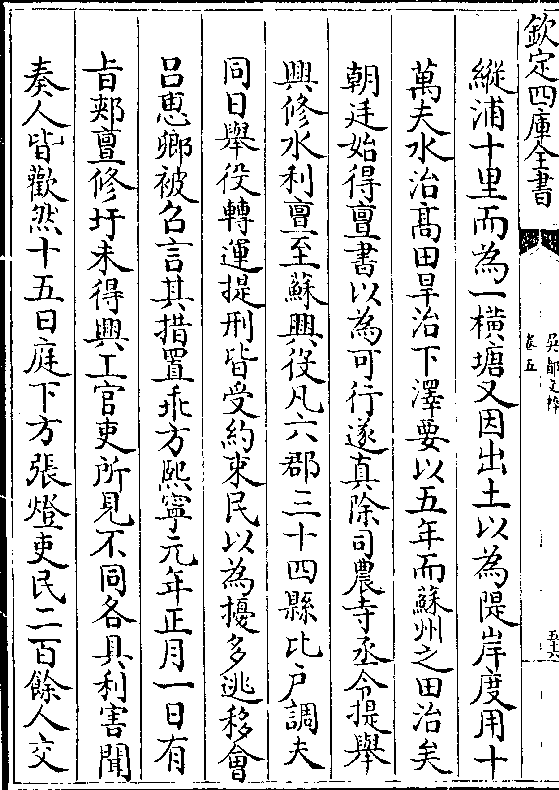 欽定四庫全書
吳都文粹
卷五
五十六
縱浦十里而為一橫塘又因出土以為隄岸度用十
萬夫水治髙田旱治下澤要以五年而蘇州之田治矣
朝廷始得亶書以為可行遂真除司農寺丞令提舉
興修水利亶至蘇興役凡六郡三十四縣比户調夫
同日舉役轉運提刑皆受約束民以為擾多逃移會
吕惠卿被召言其措置乖方熙寧元年正月一日有
旨郟亶修圩未得興工官吏所見不同各具利害聞
奏人皆歡然十五日庭下方張燈吏民二百餘人交